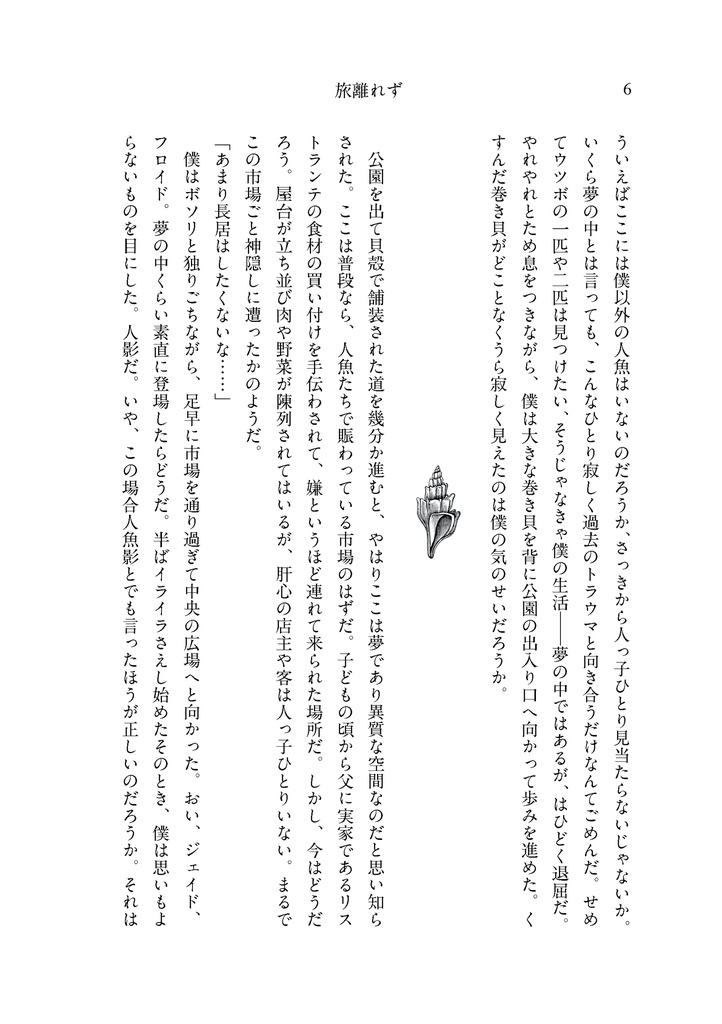 6
旅離れず
ういえばここには僕以外の人魚はいないのだろうか、さっきから人っ子ひとり見当たらないじゃないか。
いくら夢の中とは言っても、こんなひとり寂しく過去のトラウマと向き合うだけなんてごめんだ。せめ
てウツボの一匹や二匹は見つけたい、そうじゃなきゃ僕の生活――夢の中ではあるが、はひどく退屈だ。
やれやれとため息をつきながら、僕は大きな巻き貝を背に公園の出入り口へ向かって歩みを進めた。く
すんだ巻き貝がどことなくうら寂しく見えたのは僕の気のせいだろうか。
公園を出て貝殻で舗装された道を幾分か進むと、やはりここは夢であり異質な空間なのだと思い知ら
された。ここは普段なら、人魚たちで賑わっている市場のはずだ。子どもの頃から父に実家であるリス
トランテの食材の買い付けを手伝わされて、嫌というほど連れて来られた場所だ。しかし、今はどうだ
ろう。屋台が立ち並び肉や野菜が陳列されてはいるが、肝心の店主や客は人っ子ひとりいない。まるで
この市場ごと神隠しに遭ったかのようだ。
「あまり長居はしたくないな……」
僕はボソリと独りごちながら、足早に市場を通り過ぎて中央の広場へと向かった。おい、ジェイド、
フロイド。夢の中くらい素直に登場したらどうだ。半ばイライラさえし始めたそのとき、僕は思いもよ
らないものを目にした。人影だ。いや、この場合人魚影とでも言ったほうが正しいのだろうか。それは